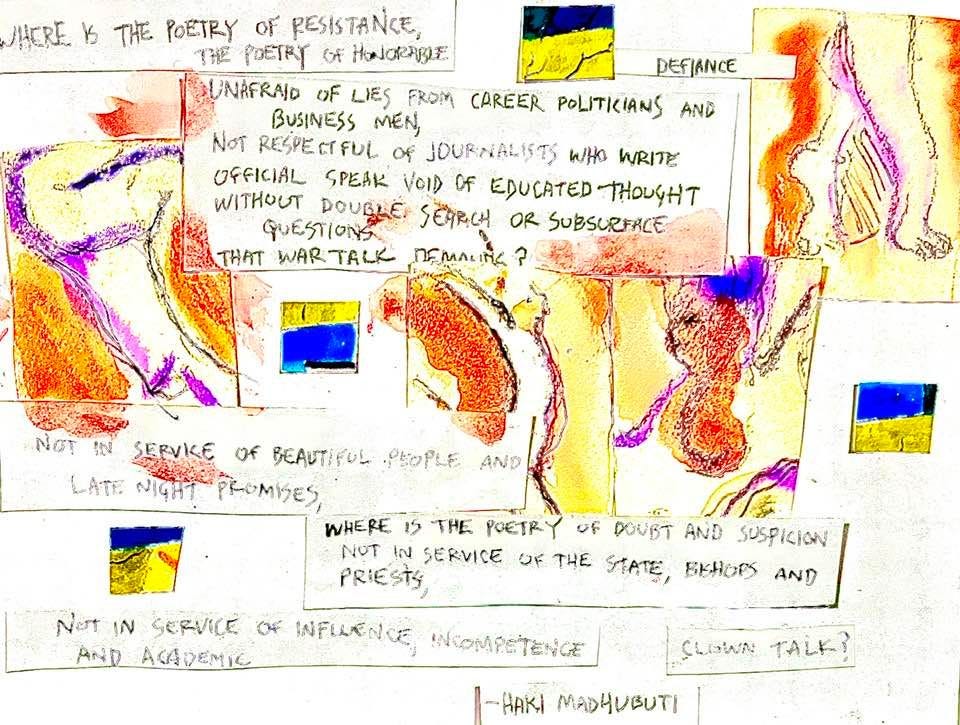 WHERE IS THE POETRY OF RESISTANCE,
THE POETRY OF HONORABLE
DEFIANCE
UNAFRAID OF LIES FROM CAREER POLITICIANS AND
BUSINESS MEN,
NOT RESPECTFUL OF JOURNALISTS WHO WRITE
OFFICIAL SPEAK VOID OF EDUCATED THOUGHT
WITHOUT DOUBLE SEARCH OR SUBSURFACE
QUESTIONS
THAT WAR TALK ?
NOT IN SERVICE OF BEAUTIFUL PEOPLE AND
LATE NIGHT PROMISES,
WHERE IS THE POETRY OF DOUBT AND SUSPICION
NOT IN SERVICE OF THE STATE, BISHOPS AND
PRIESTS,
NOT IN SERVICE OF INFLUENCE, INCOMPETENCE
AND ACADEMIC
CLOWN TALK?
-HAKI MADHUBUTI